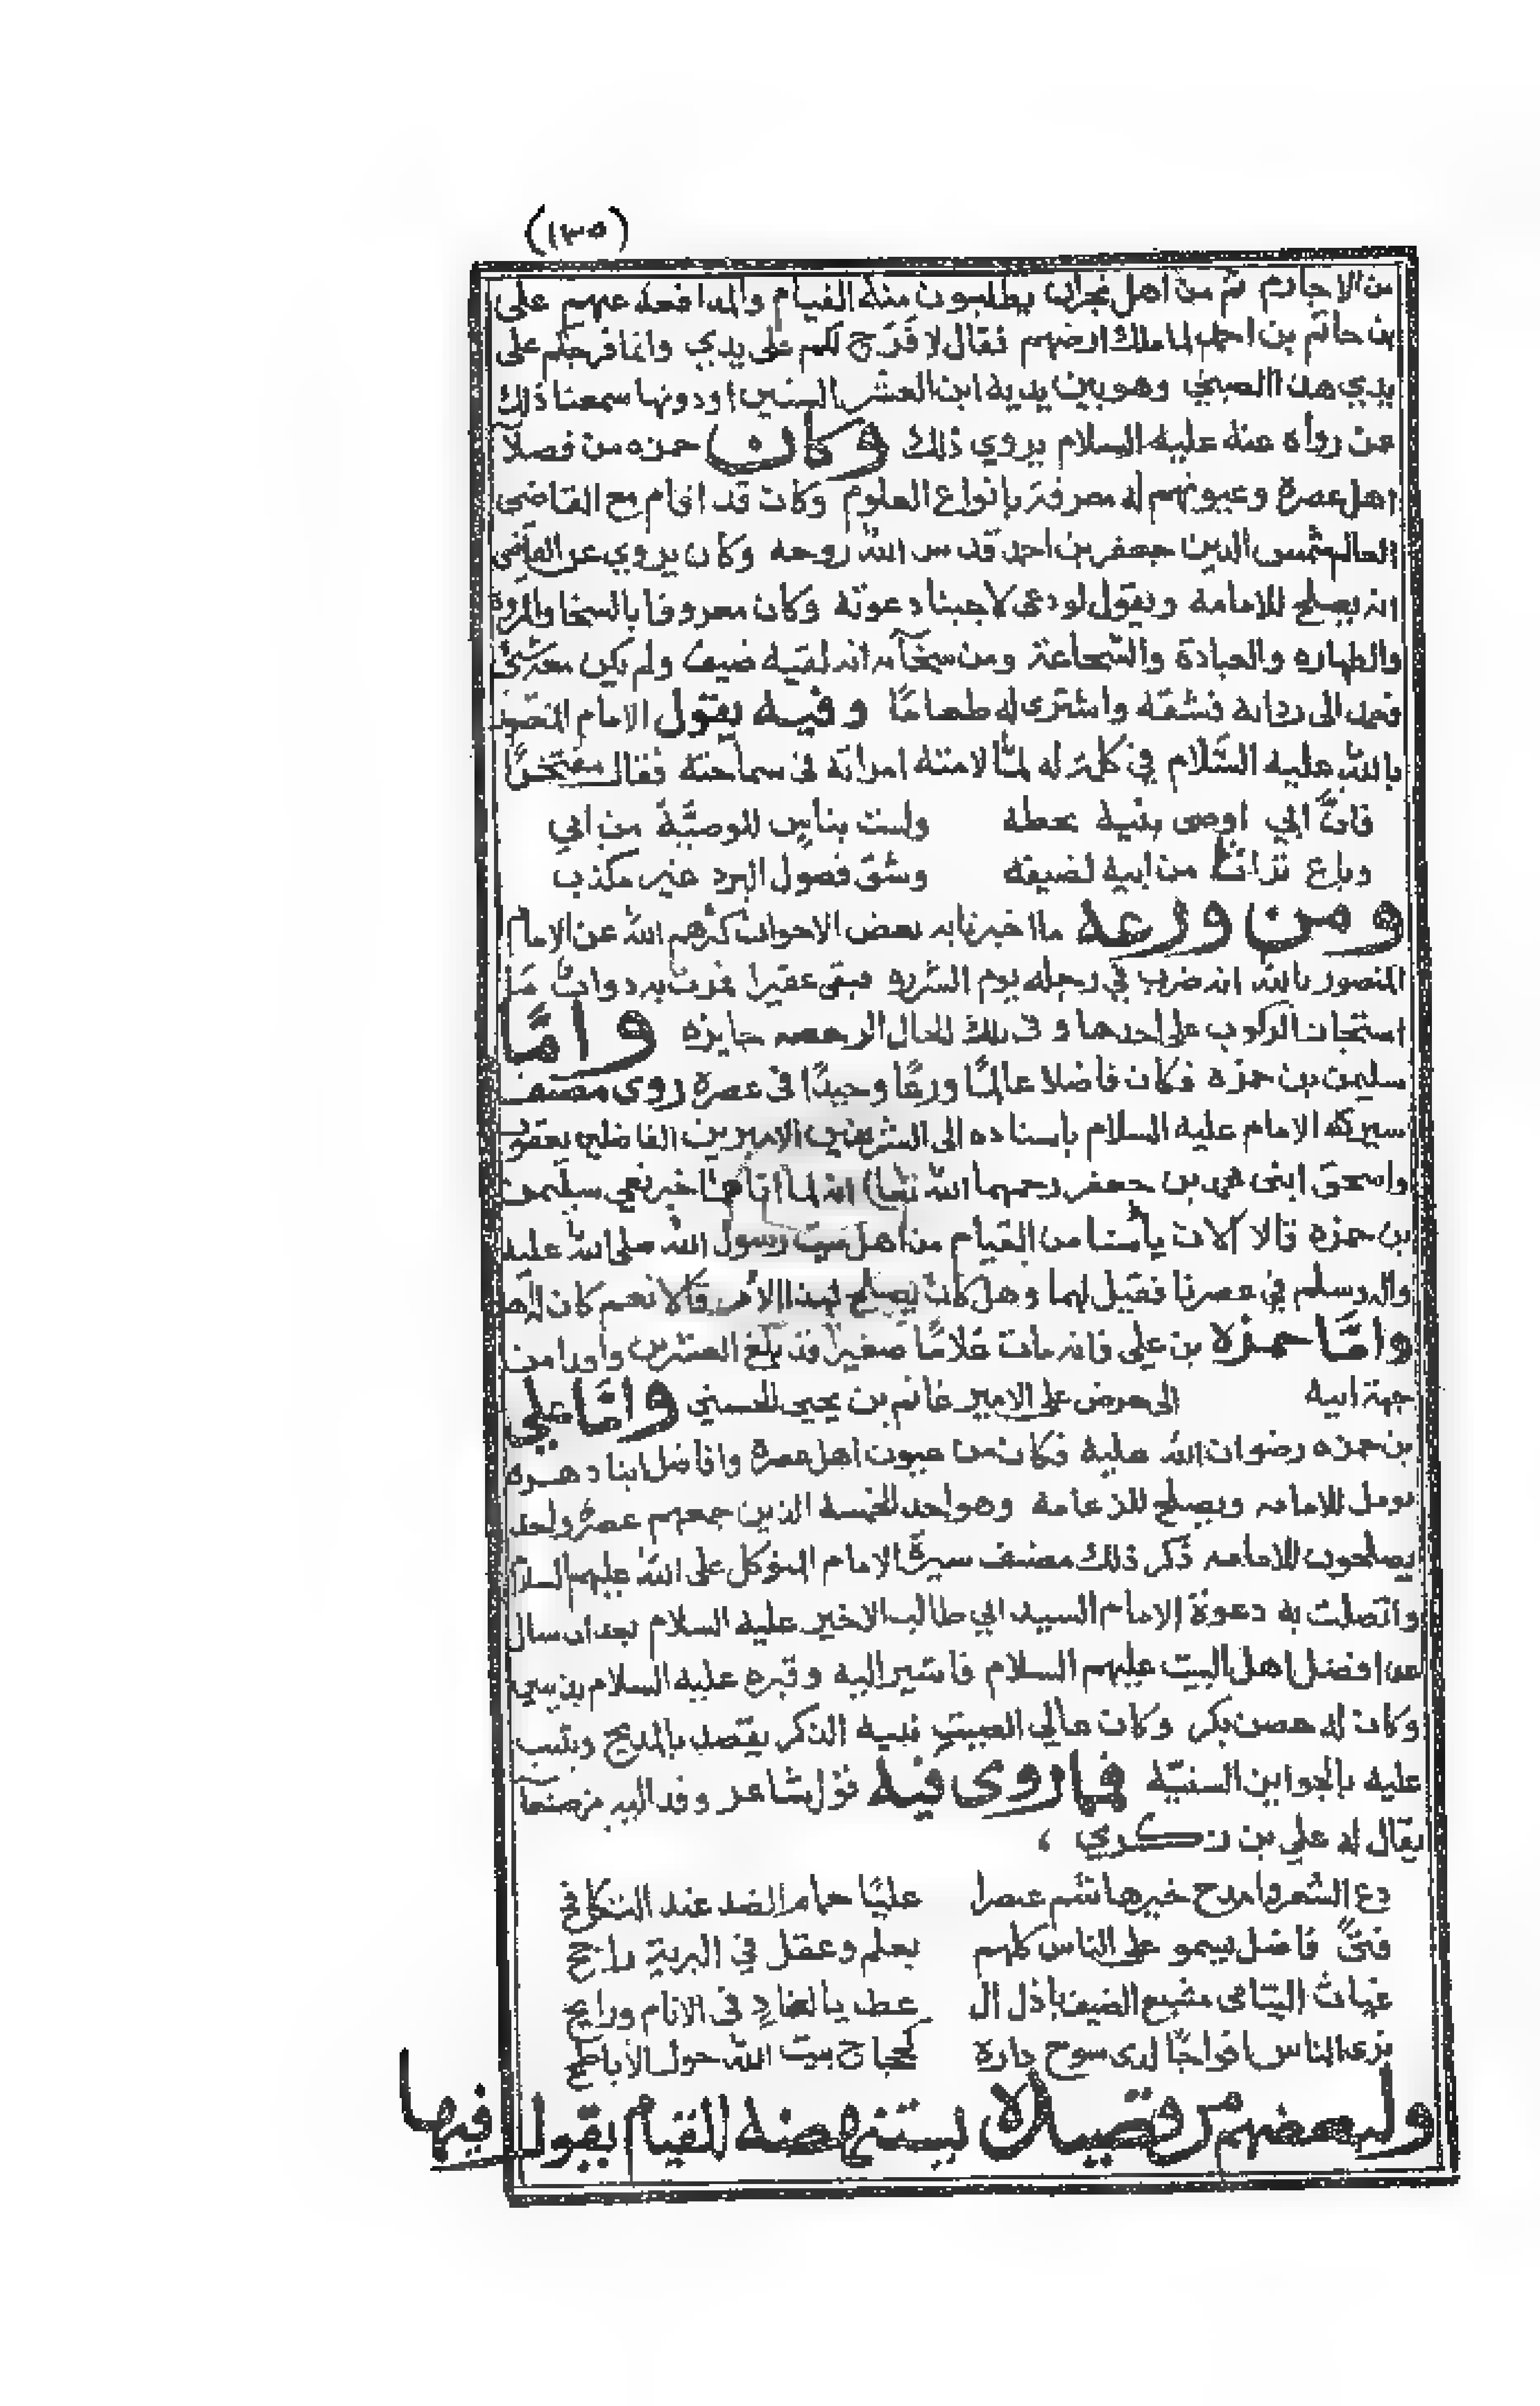 (١٣٥)
من الاجارم ثم من اهل نجران يطلبون منه القيام والمدافعه عنهم على
بن حاتم بن احمد لما ملك ارضهم فقال لا فرج لكم على يدي وانما فرجكم على
يدي هذا الصبي وهو بين يديه ابن العشر السنين او دونها سمعنا ذلك
عن رواه عنه عليه السلام يروي ذلك وكان حمزه من فضلآ
اهل عصره وعيونهم له معرفة بانواع العلوم وكان قد اقام مع القاضي
العالم شمس الدين جعفر بن احمد قدس الله روحه وكان يروي عن القاضي
انه يصلح للامامة ويقول لو دعى لاجبنا دعوته وكان معروفا بالسخا والمروة
والطهاره والعبادة والشجاعة ومن سخآئه انه لقيه ضيف ولم يكن معه شئ
فعمد الى ردائه فشقه واشترى له طعامًا وفيه يقول الامام المنصور
بالله عليه السلام في كلمة له لمَّا لامته امراته في سماحته فقال مفتخرًا
فانَّ ابي اوصى بنيه بخطه ولست بناسٍ للوصيَّة من ابي
وباع تراثا من ابيه لضيفه وشق فضول البرد غير مكذب
ومن ورعه ما اخبرنا به بعض الاخوان كثرهم الله عن الامام
المنصور بالله انه ضرب في رجله يوم الشرره فبقى عقيرا فمرت به دواب ما
استجاز الركوب على احدها وفي تلك الحال الرخصه جايزه وامَّا
سليمن بن حمزه فكان فاضلا عالمًا ورعًا وحيدًا في عصره روى مصنف
سيرة الامام عليه السلام باسناده الى الشريفين الاميرين الفاضلين يعقوب
واسحق ابنى بن جعفر رحمهما الله تعالى انهما اتاهما خبر نعي سليمن
بن حمزه قالا الان يأسنا من القيام من اهل بيت رسول الله صلى الله عليه
واله وسلم في عصرنا فقيل لهما وهل كان يصلح لهذا الامر قالا نعم كان
وامَّا حمزه بن علي فانه مات غلامًا صغيرا قد بلغ العشرين واودا من
جهة ابيه الى حرض على الامير غانم بن يحيى الحسني وامَّا علي
بن حمزه رضوان الله عليه فكان من عيون اهل عصره وافاضل ابنا دهره
يومل للامامه ويصلح للزعامة وهو احد الخمسة الذين جمعهم عصرٌ واحد
يصلحون للامامه ذكر ذلك مصنف سيرة الامام المتوكل على الله عليه السلام
واتصلت به دعوة الامام السيد ابي طالب الاخير عليه السلام بعد ان سال
عن افضل اهل البيت عليهم السلام فاشير اليه وقبره عليه السلام
وكان له حصن بكر وكان عالي الصيت نبيه الذكر يقصد بالمديح ويثيب
عليه بالجوايز السنيَّة فما روي فيه قول شاعر وفد اليه من صنعآ
يقال له علي بن زكري ،
دع الشعر وامدح خير هاشم عنصرا عليًا حمام الضد عند التكافح
فتىً فاضل يسمو على الناس كلهم بعلم وعقل في البرية راجح
غياث اليتامى مشبع الضيف باذل ال عطايا لغادٍ في الانام ورايح
ترى الناس افواجًا لدى سوح داره كحجاج بيت الله حول الأباطح
ولبعضهم من قصيدة يستنهضه للقيام يقول فيها